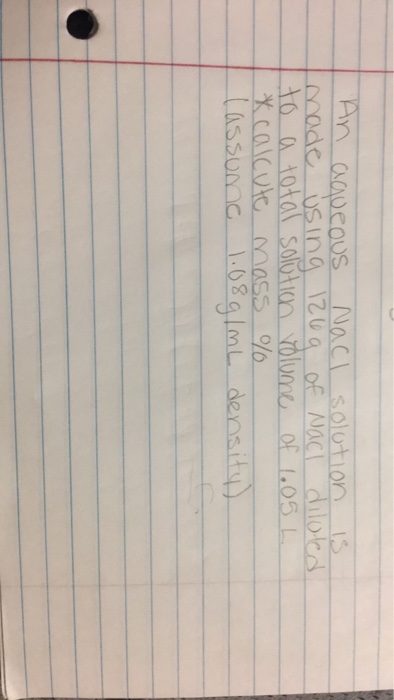 An aqueous NaCl solution is
made using 126g of NaCl diluted
to a total solution volume of 1.05 L
*calcute mass %
(assume 1.08g/mL density)